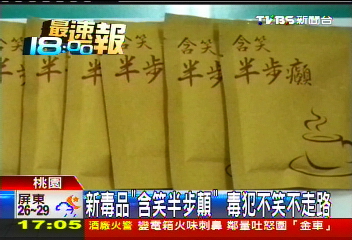 最速報
18:00
TVBS新聞台
含笑
半步癲
含笑
半步癲
含笑
半步癲
桃園
屏東
26~29
新毒品"含笑半步顛" 毒犯不笑不走路
17:05
酒廠火警 變電箱火味刺鼻 鄰量吐怒圖「金車」